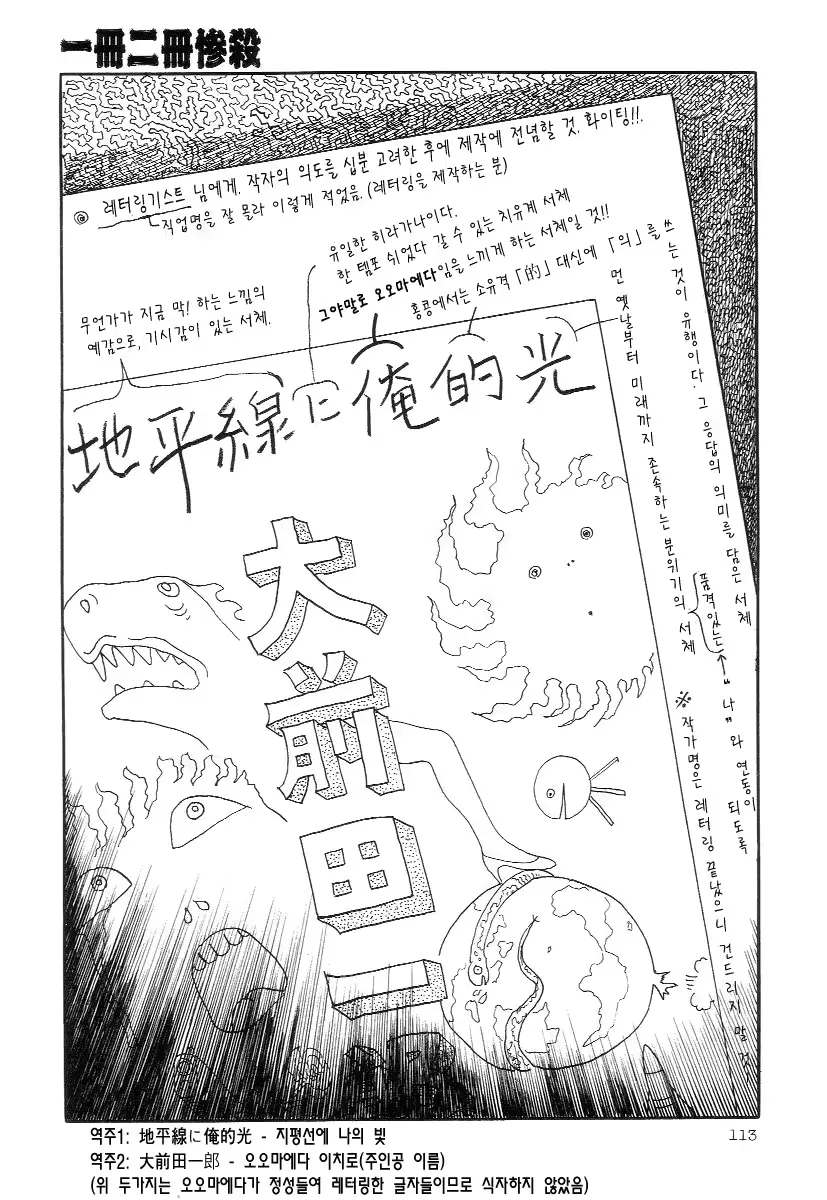 一冊二冊惨殺
◎ 레터링기스트 님에게. 작자의 의도를 십분 고려한 후에 제작에 전념할 것. 화이팅!!.
직업명을 잘 몰라 이렇게 적었음. (레터링을 제작하는 분)
무언가가 지금 막! 하는 느낌의
예감으로, 기시감이 있는 서체.
유일한 히라가나이다.
한 템포 쉬었다 갈 수 있는 치유계 서체
그야말로 오오마에다임을 느끼게 하는 서체일 것!!
홍콩에서는 소유격 「的」 대신에 「의」를 쓰는 것이 유행이다. 그 응답의 의미를 담은 서체
먼 옛날부터 미래까지 존속하는 분위기의 서체
품격있는
"나"와 연동이 되도록
※ 작가명은 레터링 끝났으니 건드리지 말 것.
地平線に俺的光
大前田一
역주1: 地平線に俺的光 - 지평선에 나의 빛
역주2: 大前田一郎 - 오오마에다 이치로(주인공 이름)
(위 두가지는 오오마에다가 정성들여 레터링한 글자들이므로 식자하지 않았음)
113